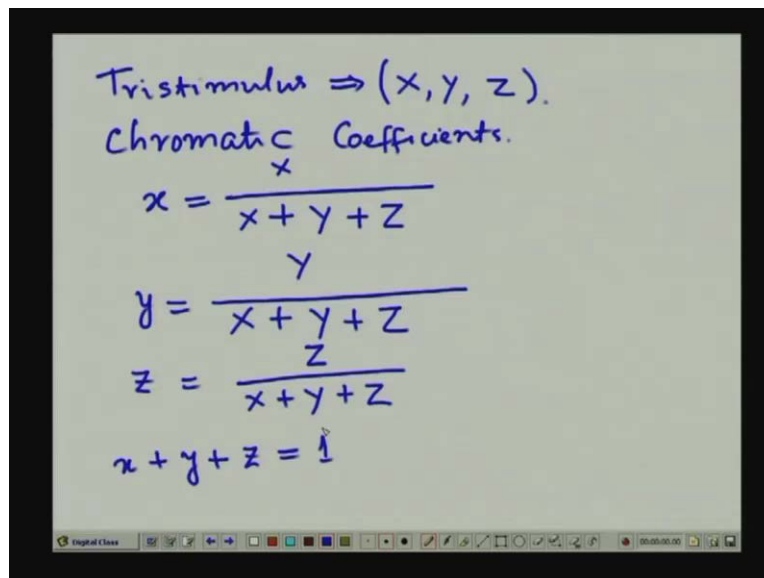 Tristimulus ⇒ (X, Y, Z).
Chromatic Coefficients.
x = X / X + Y + Z
y = Y / X + Y + Z
z = Z / X + Y + Z
x + y + z = 1
Digital Class 00:00:00.00